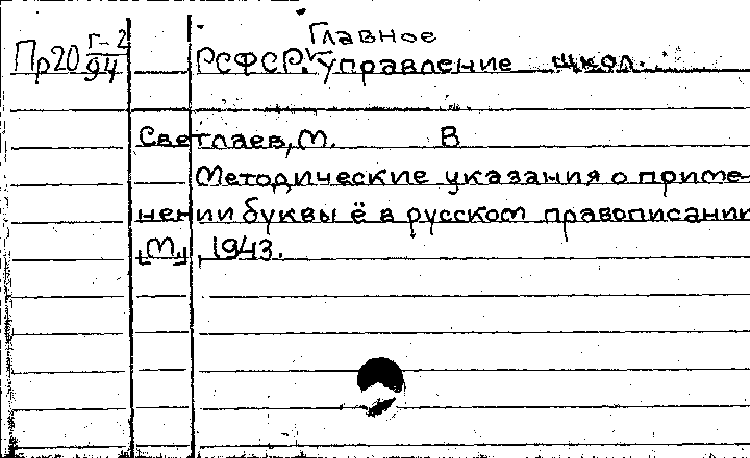 Главное
Пр20 Г-2/94 РСФСР. Управление школ.
Светлаев, М. В
Методические указания о приме-
нении буквы ё в русском правописании
[М.], 1943.